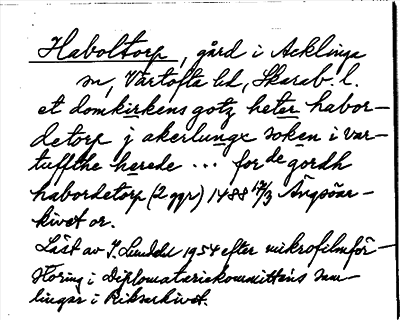 Haboltorp, gård i Acklinga
sn, Vartofta hd, Skarab. l.
et domkirkens gotz heter habor-
detorp j akerlunge soken i var-
tuffthe herede ... for de gordh
habordetorp (2 ggr) 1488 17/3 Ängsöar-
kivet or.
Läst av I. Lundahl 1954 efter mikrofilmför-
tloring i Diplomatariekommitténs sam-
lingar i Riksarkivet.